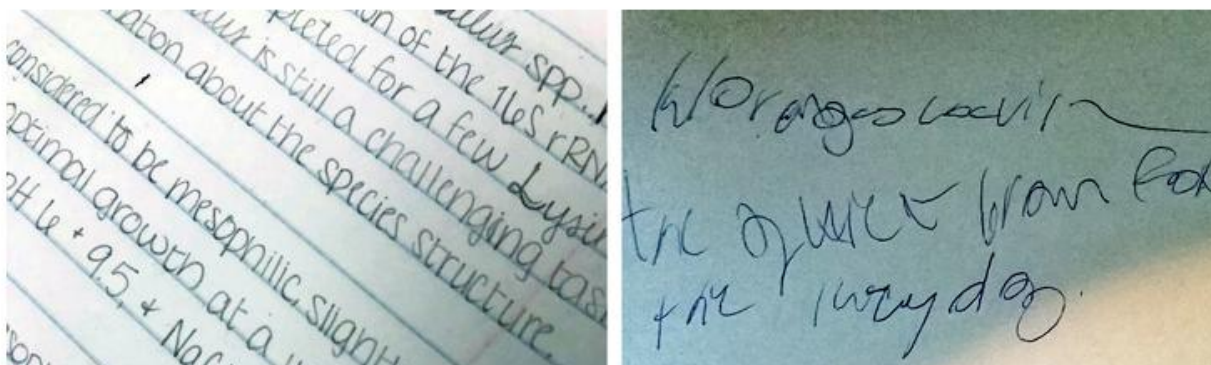 spp.
on of the 16S rRN
pleted for a few Lysi
is still a challenging tas
ation about the species structure.
considered to be mesophilic, slight
optimal growth at a
pH 6 + 9.5, + NaC
the quick brown fox
the lazy dog.